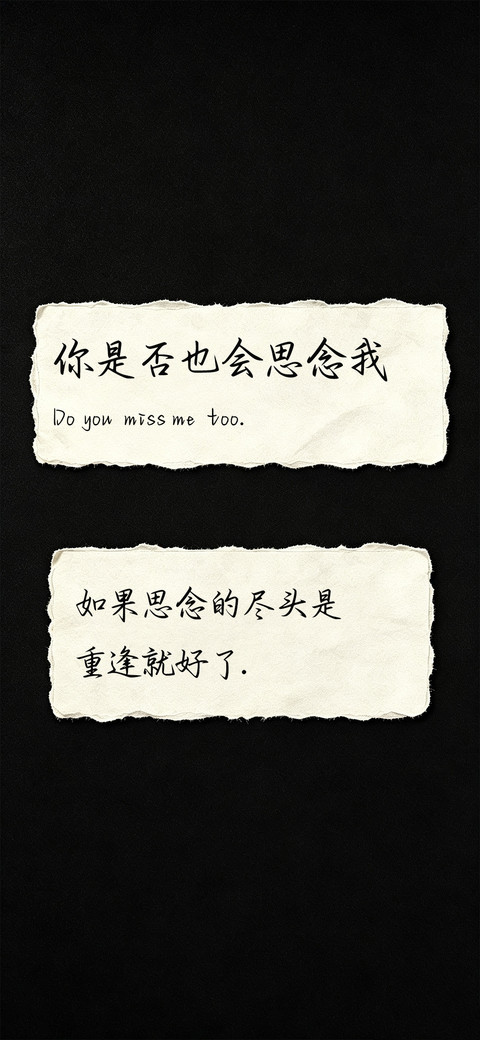 你是否也会思念我
Do you miss me too.
如果思念的尽头是
重逢就好了.